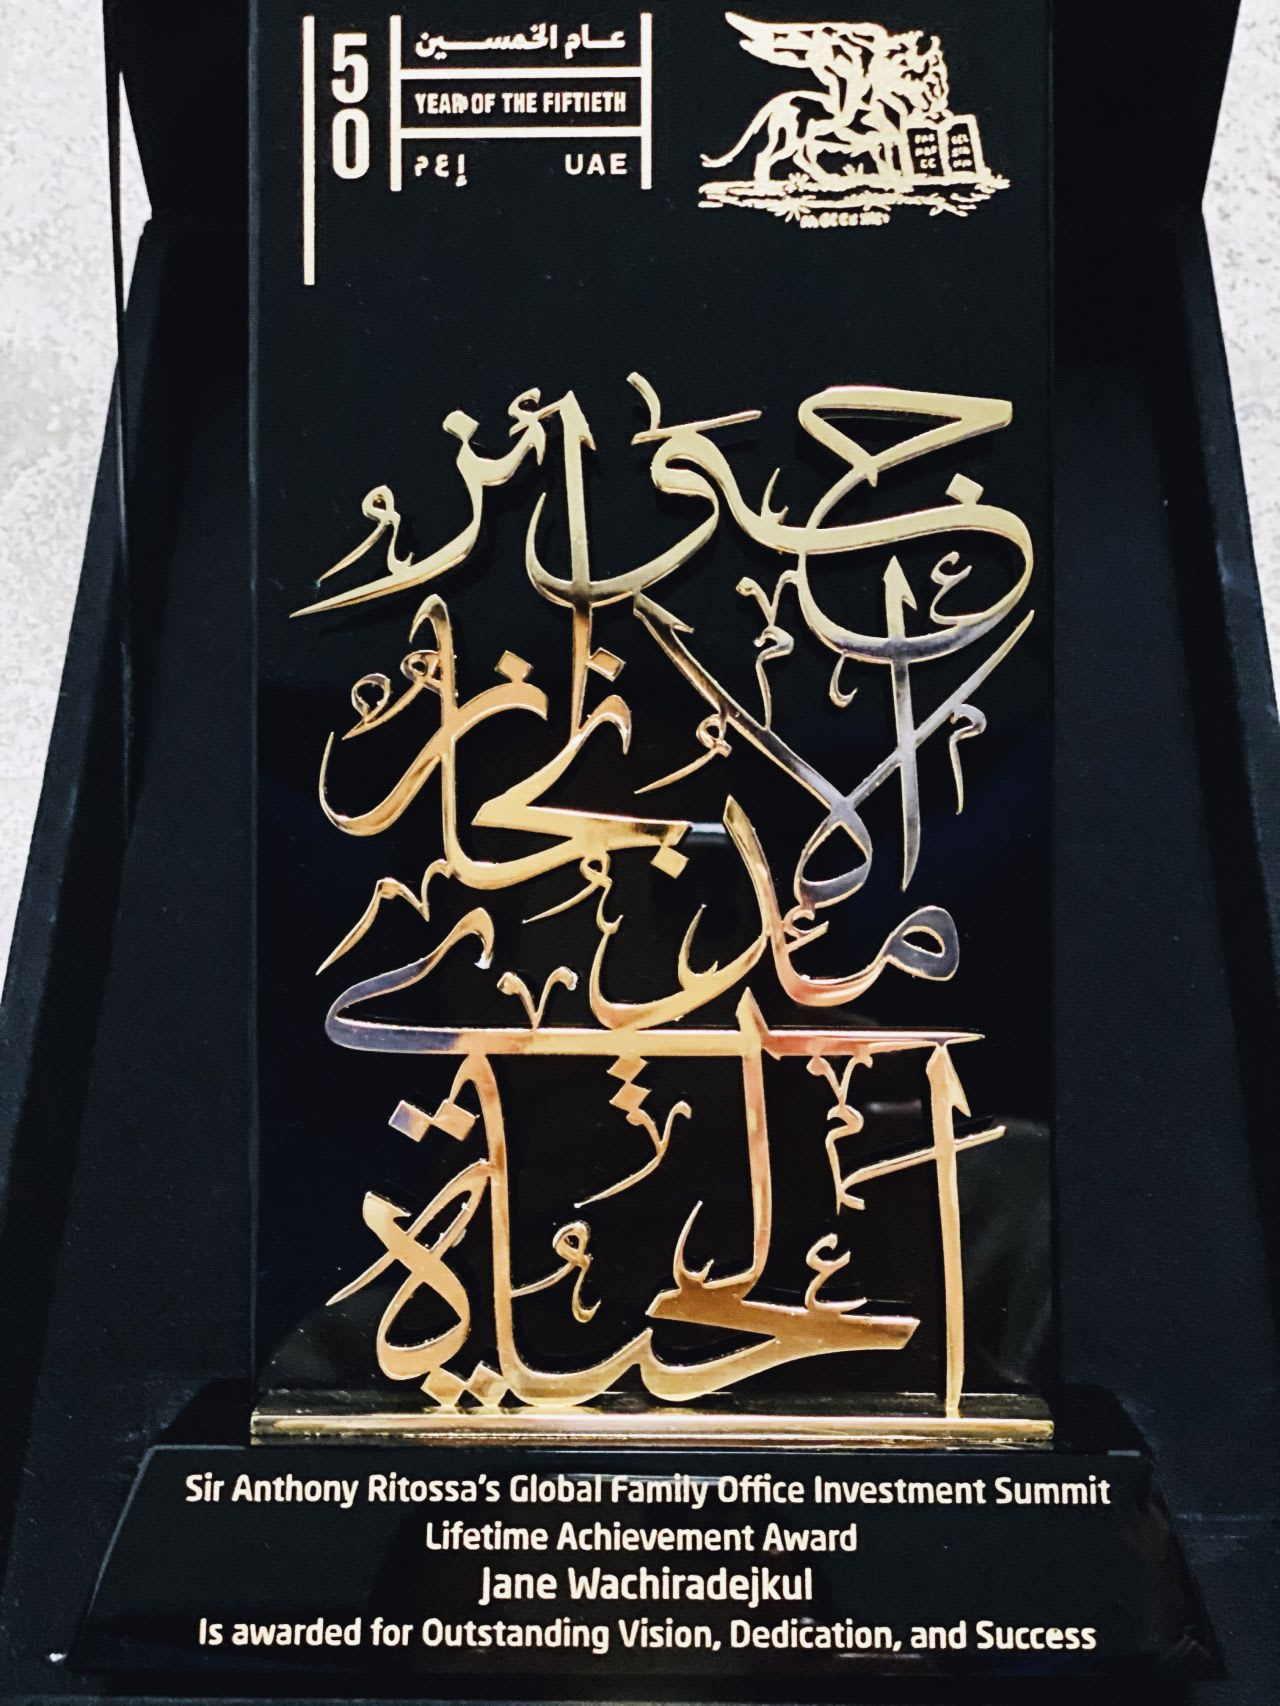 50
عام الخمسين
YEAR OF THE FIFTIETH
إ ع م UAE
جوائز
الإنجاز
مدى
الحياة
Sir Anthony Ritossa's Global Family Office Investment Summit
Lifetime Achievement Award
Jane Wachiradejkul
Is awarded for Outstanding Vision, Dedication, and Success